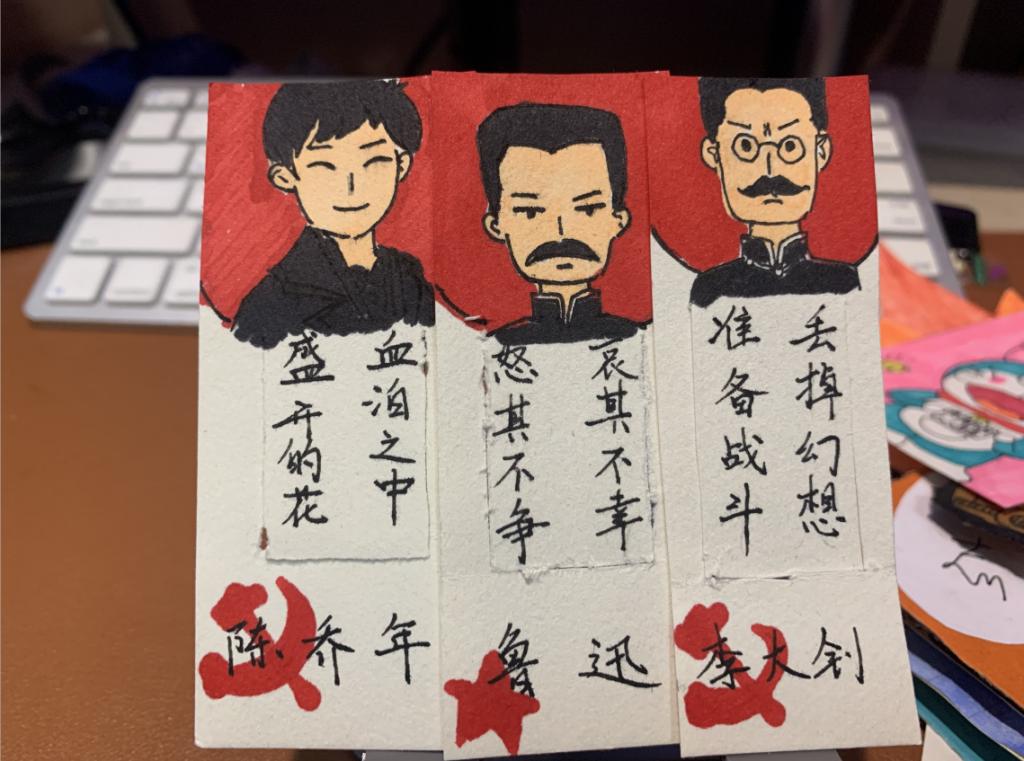 血泊之中
盛开的花
陈乔年
哀其不幸
怒其不争
鲁迅
丢掉幻想
准备战斗
李大钊